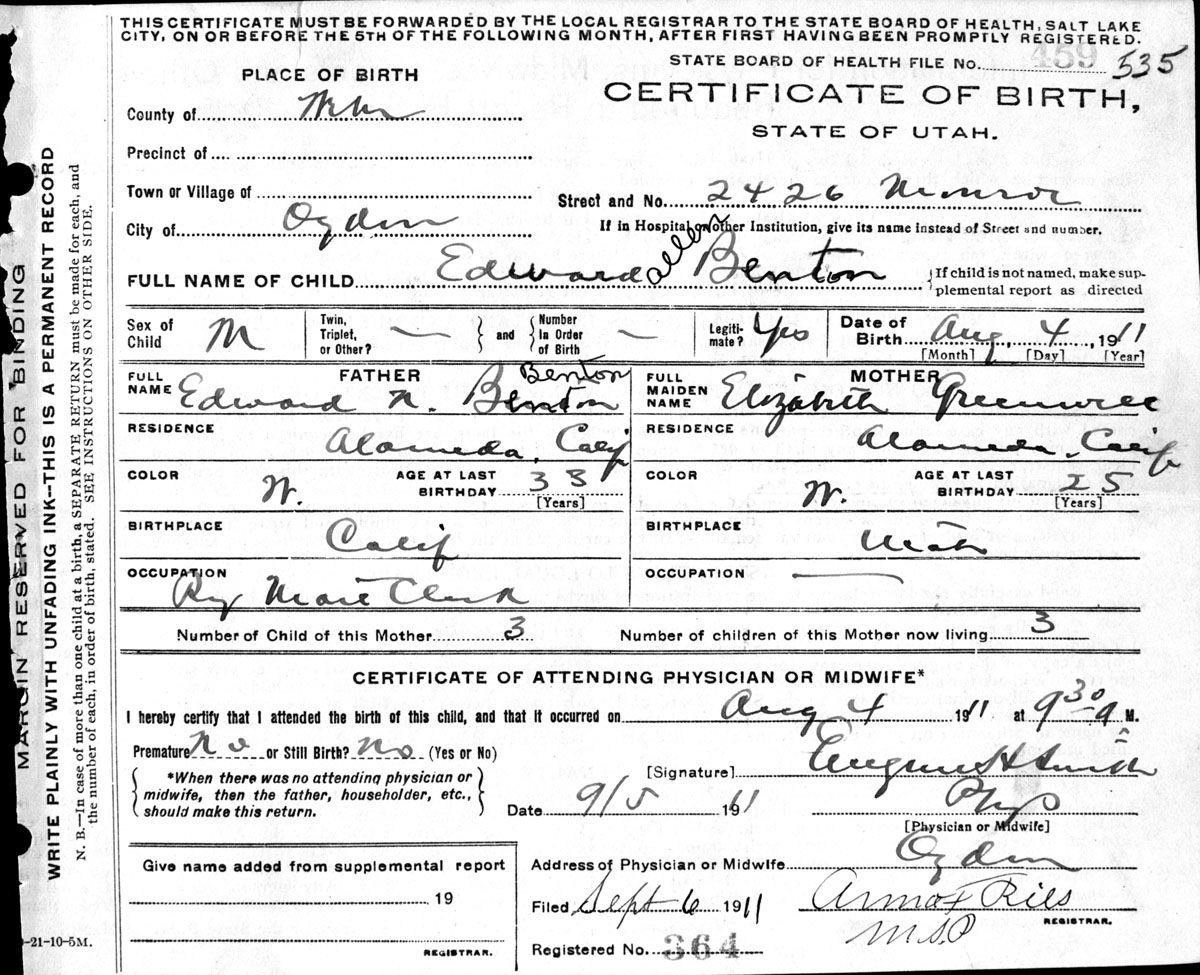 THIS CERTIFICATE MUST BE FORWARDED BY THE LOCAL REGISTRAR TO THE STATE BOARD OF HEALTH, SALT LAKE
CITY, ON OR BEFORE THE 5TH OF THE FOLLOWING MONTH, AFTER FIRST HAVING BEEN PROMPTLY REGISTERED.
STATE BOARD OF HEALTH FILE No. 459 535
PLACE OF BIRTH
CERTIFICATE OF BIRTH,
STATE OF UTAH.
County of
Precinct of
Town or Village of
Street and No. 2426 Monroe
City of Ogden
If in Hospital or other Institution, give its name instead of Street and number.
FULL NAME OF CHILD Edward Allen Benton
{If child is not named, make sup-
plemental report as directed
Sex of Child M
Twin, Triplet, or Other? —
and Number In Order of Birth —
Legiti-mate? Yes
Date of Birth Aug 4, 1911
[Month] [Day] [Year]
FATHER
FULL NAME Edward N. Benton Benton
RESIDENCE Alameda, Calif
COLOR W.
AGE AT LAST BIRTHDAY 33
[Years]
BIRTHPLACE Calif
OCCUPATION Ry Mail Clerk
MOTHER
FULL MAIDEN NAME Elizabeth Greenwell
RESIDENCE Alameda, Calif
COLOR W.
AGE AT LAST BIRTHDAY 25
[Years]
BIRTHPLACE Utah
OCCUPATION —
Number of Child of this Mother 3
Number of children of this Mother now living 3
CERTIFICATE OF ATTENDING PHYSICIAN OR MIDWIFE*
I hereby certify that I attended the birth of this child, and that it occurred on Aug 4 1911 at 9 30 a M.
Premature No or Still Birth? No (Yes or No)
*When there was no attending physician or
midwife, then the father, householder, etc.,
should make this return.
[Signature] H Smith
Date 9/5 1911
Phys
[Physician or Midwife]
Give name added from supplemental report
19
REGISTRAR.
Address of Physician or Midwife Ogden
Filed Sept 6 1911
REGISTRAR.
Registered No. 364
-21-10-5M.
MARGIN RESERVED FOR BINDING
WRITE PLAINLY WITH UNFADING INK--THIS IS A PERMANENT RECORD
N. B.—In case of more than one child at a birth, a SEPARATE RETURN must be made for each, and
the number of each, in order of birth, stated. SEE INSTRUCTIONS ON OTHER SIDE.